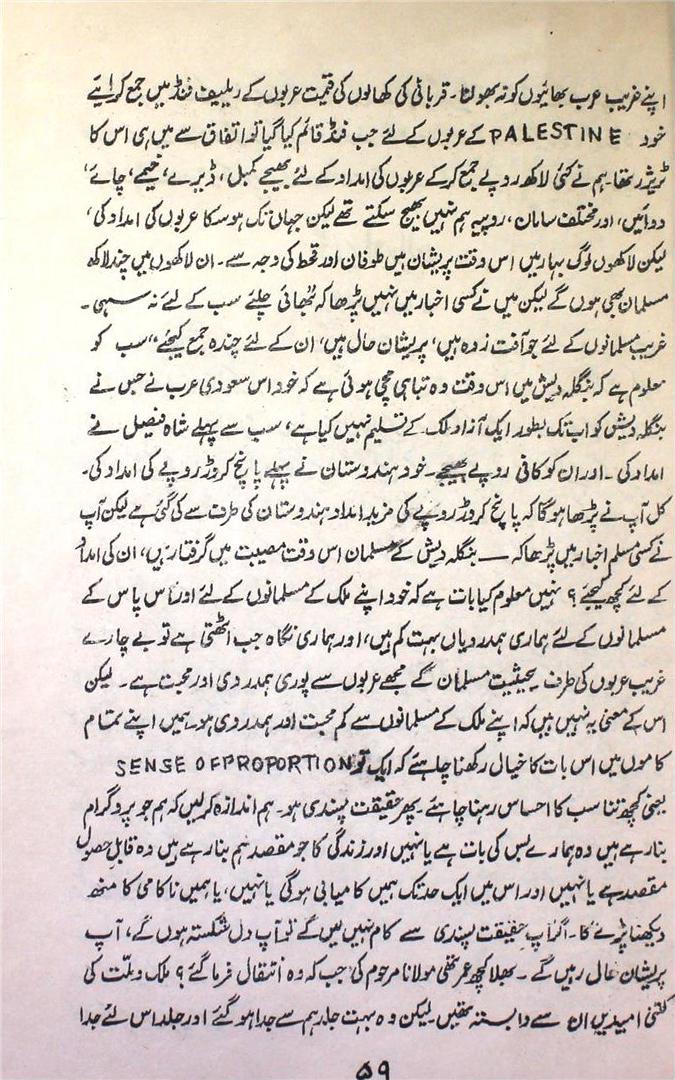 اپنے غریب عرب بھائیوں کو نہ بھولنا۔ قربانی کی کھالوں کی قیمت عربوں کے ریلیف فنڈ میں جمع کرایئے
خود PALESTINE کے عربوں کے لئے جب فنڈ قائم کیا گیا تو اتفاق سے میں ہی اس کا
ٹریژرر تھا۔ ہم نے کئی لاکھ روپے جمع کرکے عربوں کی امداد کے لئے بھیجے کمبل، ڈیرے، خیمے، چائے،
دوائیں، اور مختلف سامان، روپیہ ہم نہیں بھیج سکتے تھے لیکن جہاں تک ہوسکا عربوں کی امداد کی،
لیکن لاکھوں لوگ بہار میں اس وقت پریشان ہیں طوفان اور قحط کی وجہ سے۔ ان لاکھوں میں چند لاکھ
مسلمان بھی ہوں گے لیکن میں نے کسی اخبار میں نہیں پڑھا کہ بھائی چلئے سب کے لئے نہ سہی۔
غریب مسلمانوں کے لئے جو آفت زدہ ہیں، پریشان حال ہیں، ان کے لئے چندہ جمع کیجئے، سب کو
معلوم ہے کہ بنگلہ دیش میں اس وقت وہ تباہی مچی ہوئی ہے کہ خود اس سعودی عرب نے جس نے
بنگلہ دیش کو اب تک بطور ایک آزاد ملک کے تسلیم نہیں کیا ہے، سب سے پہلے شاہ فیصل نے
امداد کی۔ اور ان کو کافی روپے بھیجے۔ خود ہندوستان نے پہلے پانچ کروڑ روپے کی امداد کی۔
کل آپ نے پڑھا ہوگا کہ پانچ کروڑ روپے کی مزید امداد ہندوستان کی طرف سے کی گئی ہے لیکن آپ
نے کسی مسلم اخبار میں پڑھا کہ — بنگلہ دیش کے مسلمان اس وقت مصیبت میں گرفتار ہیں، ان کی امداد
کے لئے کچھ کیجئے؟ نہیں معلوم کیا بات ہے کہ خود اپنے ملک کے مسلمانوں کے لئے اور آس پاس کے
مسلمانوں کے لئے ہماری ہمدردیاں بہت کم ہیں، اور ہماری نگاہ جب اٹھتی ہے تو بے چارے
غریب عربوں کی طرف بحیثیت مسلمان کے مجھے عربوں سے پوری ہمدردی اور محبت ہے۔ لیکن
اس کے معنی یہ نہیں ہیں کہ اپنے ملک کے مسلمانوں سے کم محبت اور ہمدردی ہو۔ ہمیں اپنے تمام
کاموں میں اس بات کا خیال رکھنا چاہئے کہ ایک تو SENSE OF PROPORTION
یعنی کچھ تناسب کا احساس رہنا چاہئے۔ پھر حقیقت پسندی ہو۔ ہم اندازہ کرلیں کہ ہم جو پروگرام
بنارہے ہیں وہ ہمارے بس کی بات ہے یا نہیں اور زندگی کا جو مقصد ہم بنارہے ہیں وہ قابل حصول
مقصد ہے یا نہیں اور اس میں ایک حد تک ہمیں کامیابی ہوگی یا نہیں، یا ہمیں ناکامی کا منھ
دیکھنا پڑے گا۔ اگر آپ حقیقت پسندی سے کام نہیں لیں گے تو آپ دل شکستہ ہوں گے، آپ
پریشان حال رہیں گے۔ بھلا کچھ عمر تھی مولانا مرحوم کی جب کہ وہ انتقال فرما گئے؟ ملک و ملت کی
کتنی امیدیں ان سے وابستہ تھیں۔ لیکن وہ بہت جلد ہم سے جدا ہوگئے اور جلد اس لئے جدا
۵۹